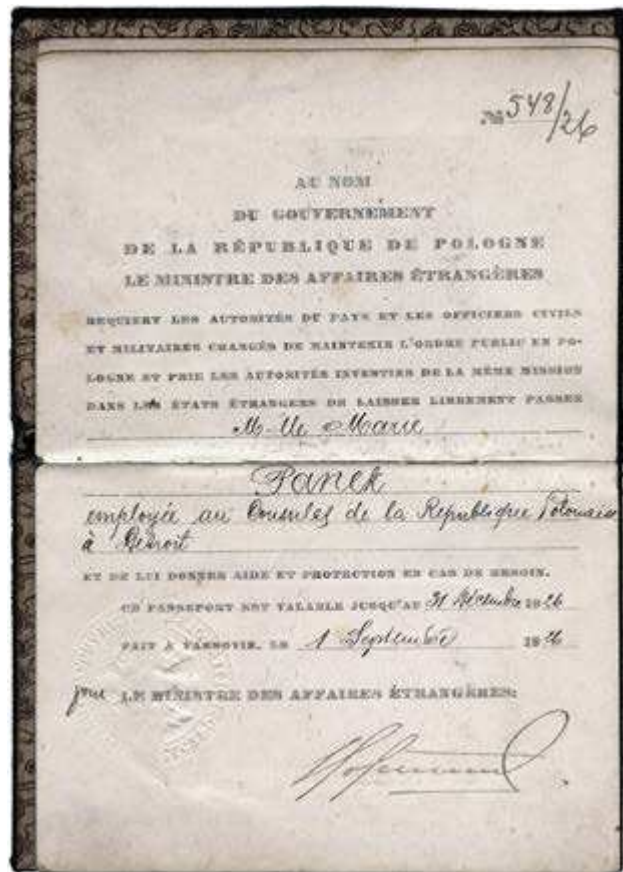 № 548/26
AU NOM
DU GOUVERNEMENT
DE LA RÉPUBLIQUE DE POLOGNE
LE MINISTRE DES AFFAIRES ÉTRANGÈRES
REQUIERT LES AUTORITÉS DU PAYS ET LES OFFICIERS CIVILS
ET MILITAIRES CHARGÉS DE MAINTENIR L'ORDRE PUBLIC EN PO-
LOGNE ET PRIE LES AUTORITÉS INVESTIES DE LA MÊME MISSION
DANS LES ÉTATS ÉTRANGERS DE LAISSER LIBREMENT PASSER
M-lle Marie
Panek
employée au Consulat de la République Polonaise
à Detroit
ET DE LUI DONNER AIDE ET PROTECTION EN CAS DE BESOIN.
CE PASSEPORT EST VALABLE JUSQU'AU 31 Décembre 1926
FAIT À VARSOVIE, LE 1 Septembre 1926
pour LE MINISTRE DES AFFAIRES ÉTRANGÈRES: